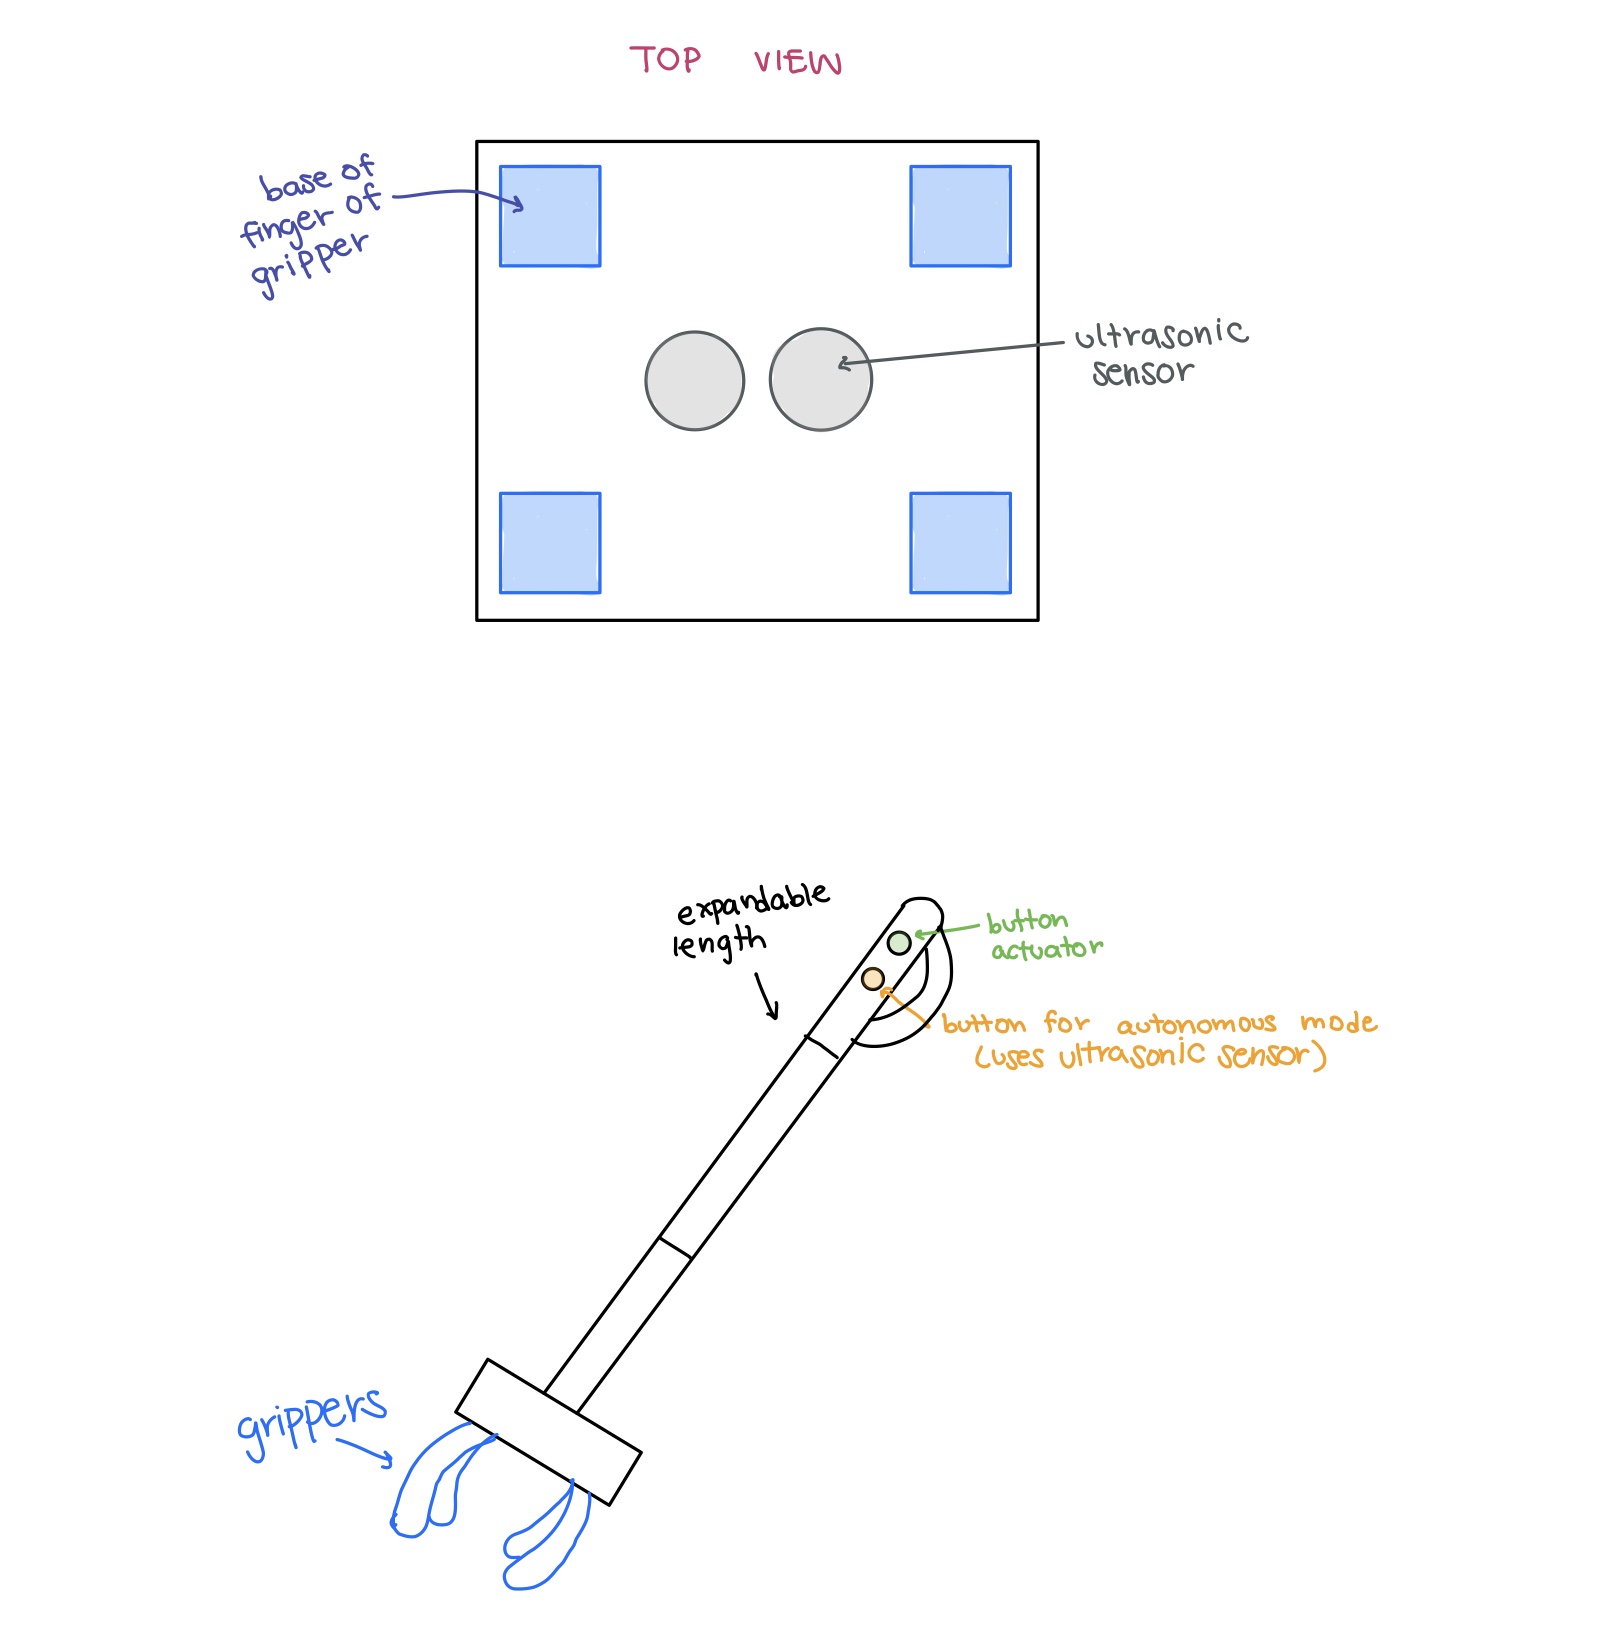 TOP VIEW
base of
finger of
gripper
ultrasonic
sensor
expandable
length
button
actuator
button for autonomous mode
(uses ultrasonic sensor)
grippers